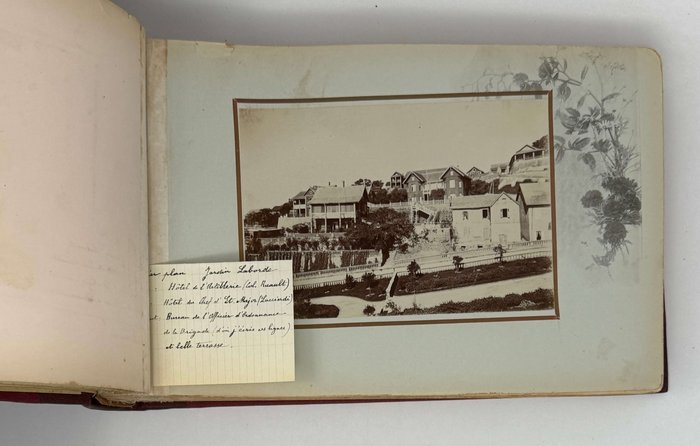 er plan Jardin Laborde
Hôtel de l'Artillerie (Col. Ruault)
Hôtel du Chef d'Et. Major (Lucciardi
t. Bureau de l'Officier d'Ordonnance
de la Brigade (d'où j'écris ces lignes)
et belle terrasse.